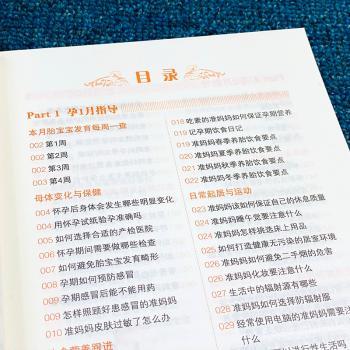 目录
Part 1 孕1月指导
本月胎宝宝发育每周一查
002 第1周
002 第2周
003 第3周
003 第4周
母体变化与保健
004 怀孕后身体会发生哪些明显变化
004 用怀孕试纸验孕准确吗
005 如何选择合适的产检医院
006 怀孕期间需要做哪些检查
007 如何避免胎宝宝发育畸形
008 孕期如何预防感冒
009 孕期感冒后能不能用药
009 怎样照顾好患感冒的准妈妈
010 准妈妈皮肤过敏了怎么办
018 吃素的准妈妈如何保证孕期营养
019 记孕期饮食日记
019 准妈妈春季养胎饮食要点
020 准妈妈夏季养胎饮食要点
021 准妈妈秋季养胎饮食要点
022 准妈妈冬季养胎饮食要点
日常起居与运动
023 准妈妈该如何保证自己的休息质量
024 准妈妈睡午觉要注意什么
024 准妈妈怎样挑选床上用品
025 如何打造健康无污染的居室环境
026 准妈妈如何避免二手烟的危害
026 准妈妈化妆要注意什么
027 生活中的辐射源有哪些
028 准妈妈如何选择防辐射服
029 经常使用电脑的准妈妈需要注意
什么